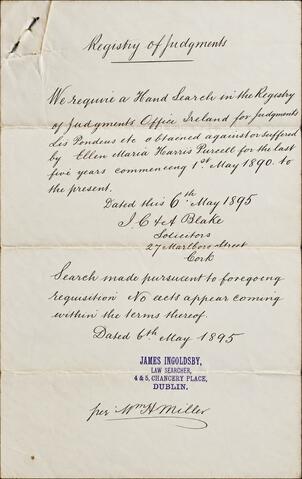 Registry of Judgments
We require a Hand Search in the Registry
of Judgments Office Ireland for Judgments
Lis Pendens etc obtained against or suffered
by Ellen Maria Harris Purcell for the last
five years commencing 1st May 1890. to
the present.
Dated this 6th May 1895
J. C & A Blake
Solicitors
27 Marlboro Street
Cork
Search made pursuant to foregoing
requisition No acts appear coming
within the terms thereof.
Dated 6th May 1895
JAMES INGOLDSBY,
LAW SEARCHER,
4 & 5, CHANCERY PLACE,
DUBLIN.
per Wm H Miller